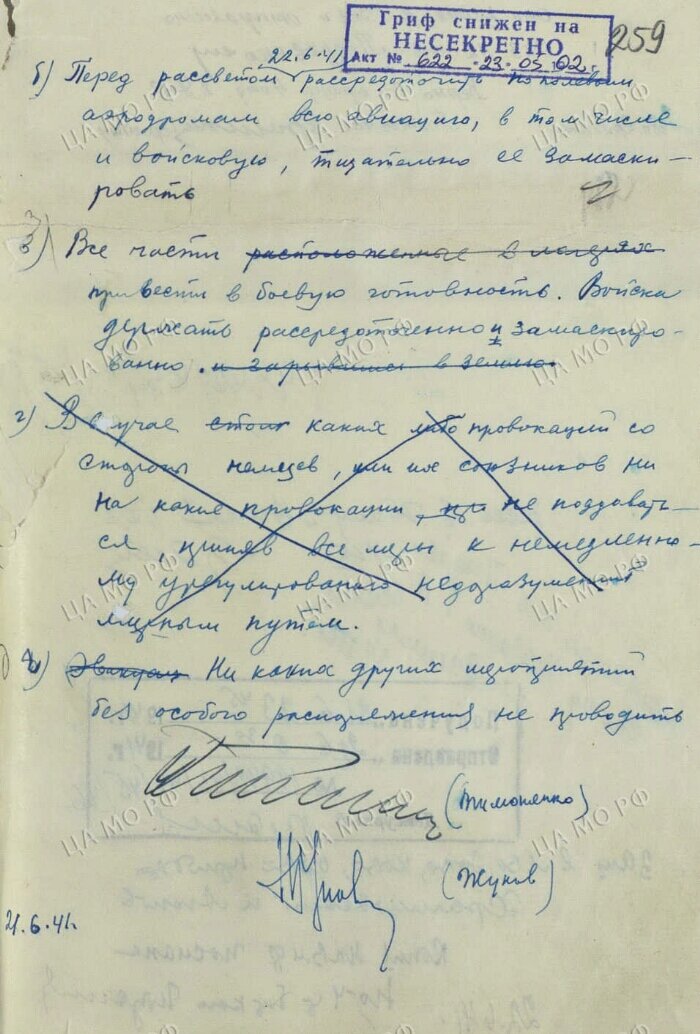 Гриф снижен на
НЕСЕКРЕТНО
Акт № 622 - 23-05.02 г.
259
22.6.41
б) Перед рассветом рассредоточить по полевым
аэродромам всю авиацию, в том числе
и войсковую, тщательно ее замаски-
ровать
в) Все части расположенные в лагерях
привести в боевую готовность. Войска
держать рассредоточенно и замаскиро-
ванно. и зарывшись в землю.
г) В случае каких либо провокаций со
стороны немцев, или их союзников ни
на какие провокации, не поддавать-
ся, приняв все меры к немедленно-
му урегулированию недоразумения
мирным путем.
Ни каких других мероприятий
без особого распоряжения не проводить
(Тимошенко)
(Жуков)
21.6.41.
ЦА МО РФ